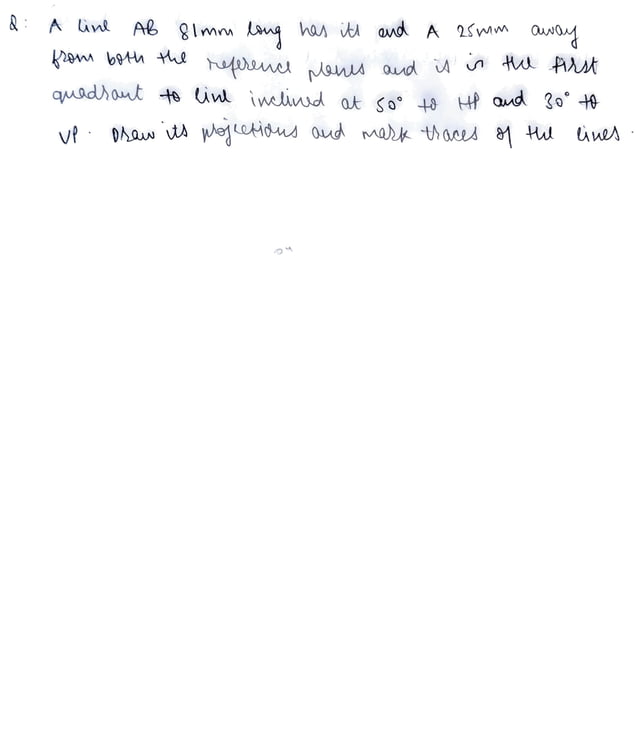 Q: A line AB 81mm long has its end A 25mm away
from both the reference planes and is in the first
quadrant to line inclined at 50° to HP and 30° to
VP. Draw its projections and mark traces of the lines.